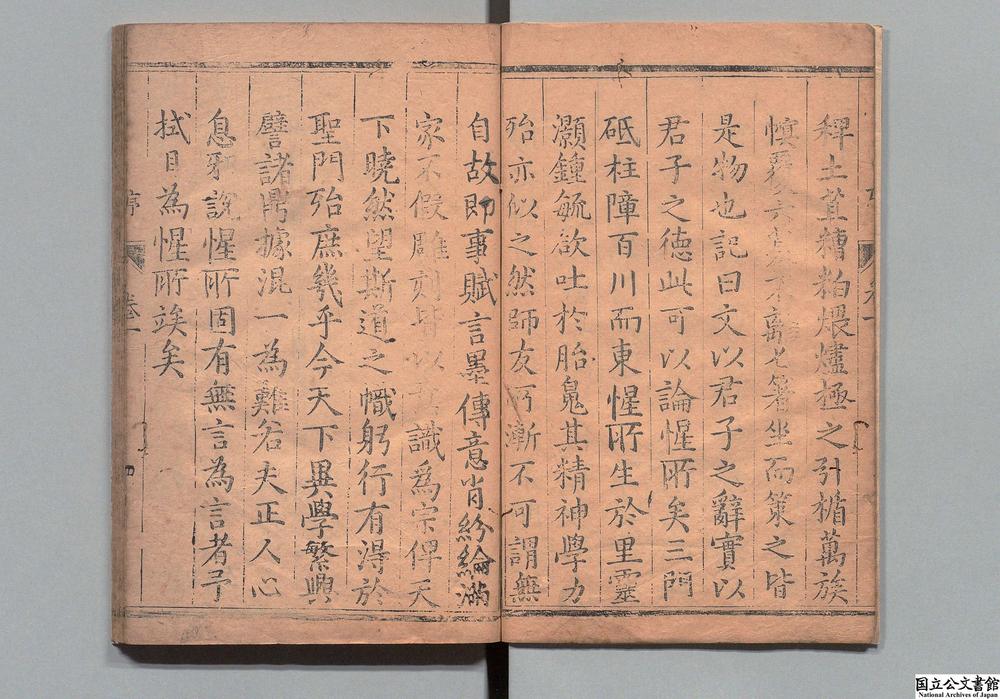 稗土苴糟粕煨燼極之引楯萬族
慎不離先箸坐而策之皆
是物也記曰文以君子之辭實以
君子之德此可以論惺所矣三門
砥柱障百川而東惺所生於里靈
灝鍾毓欲吐於胎鬼其精神學力
殆亦似之然師友所漸不可謂無
自故即事賦言墨傳意肖紛綸滿
家不假雕刻皆以識為宗俾天
下曉然望斯道之幟躬行有淂於
聖門殆庶幾乎今天下異學繁興
譬諸鼎據混一為難若夫正人心
息邪說惺所固有無言為言者予
拭目為惺所竢矣
序
卷一
国立公文書館
National Archives of Japan